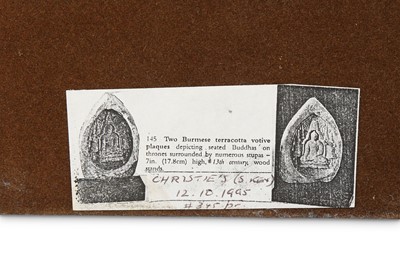 145 Two Burmese terracotta votive
plaques depicting seated Buddhas on
thrones surrounded by numerous stupas –
7in. (17.8cm) high, 13th century, wood
stands.
CHRISTIE'S (S. KEN)
12.10.1995